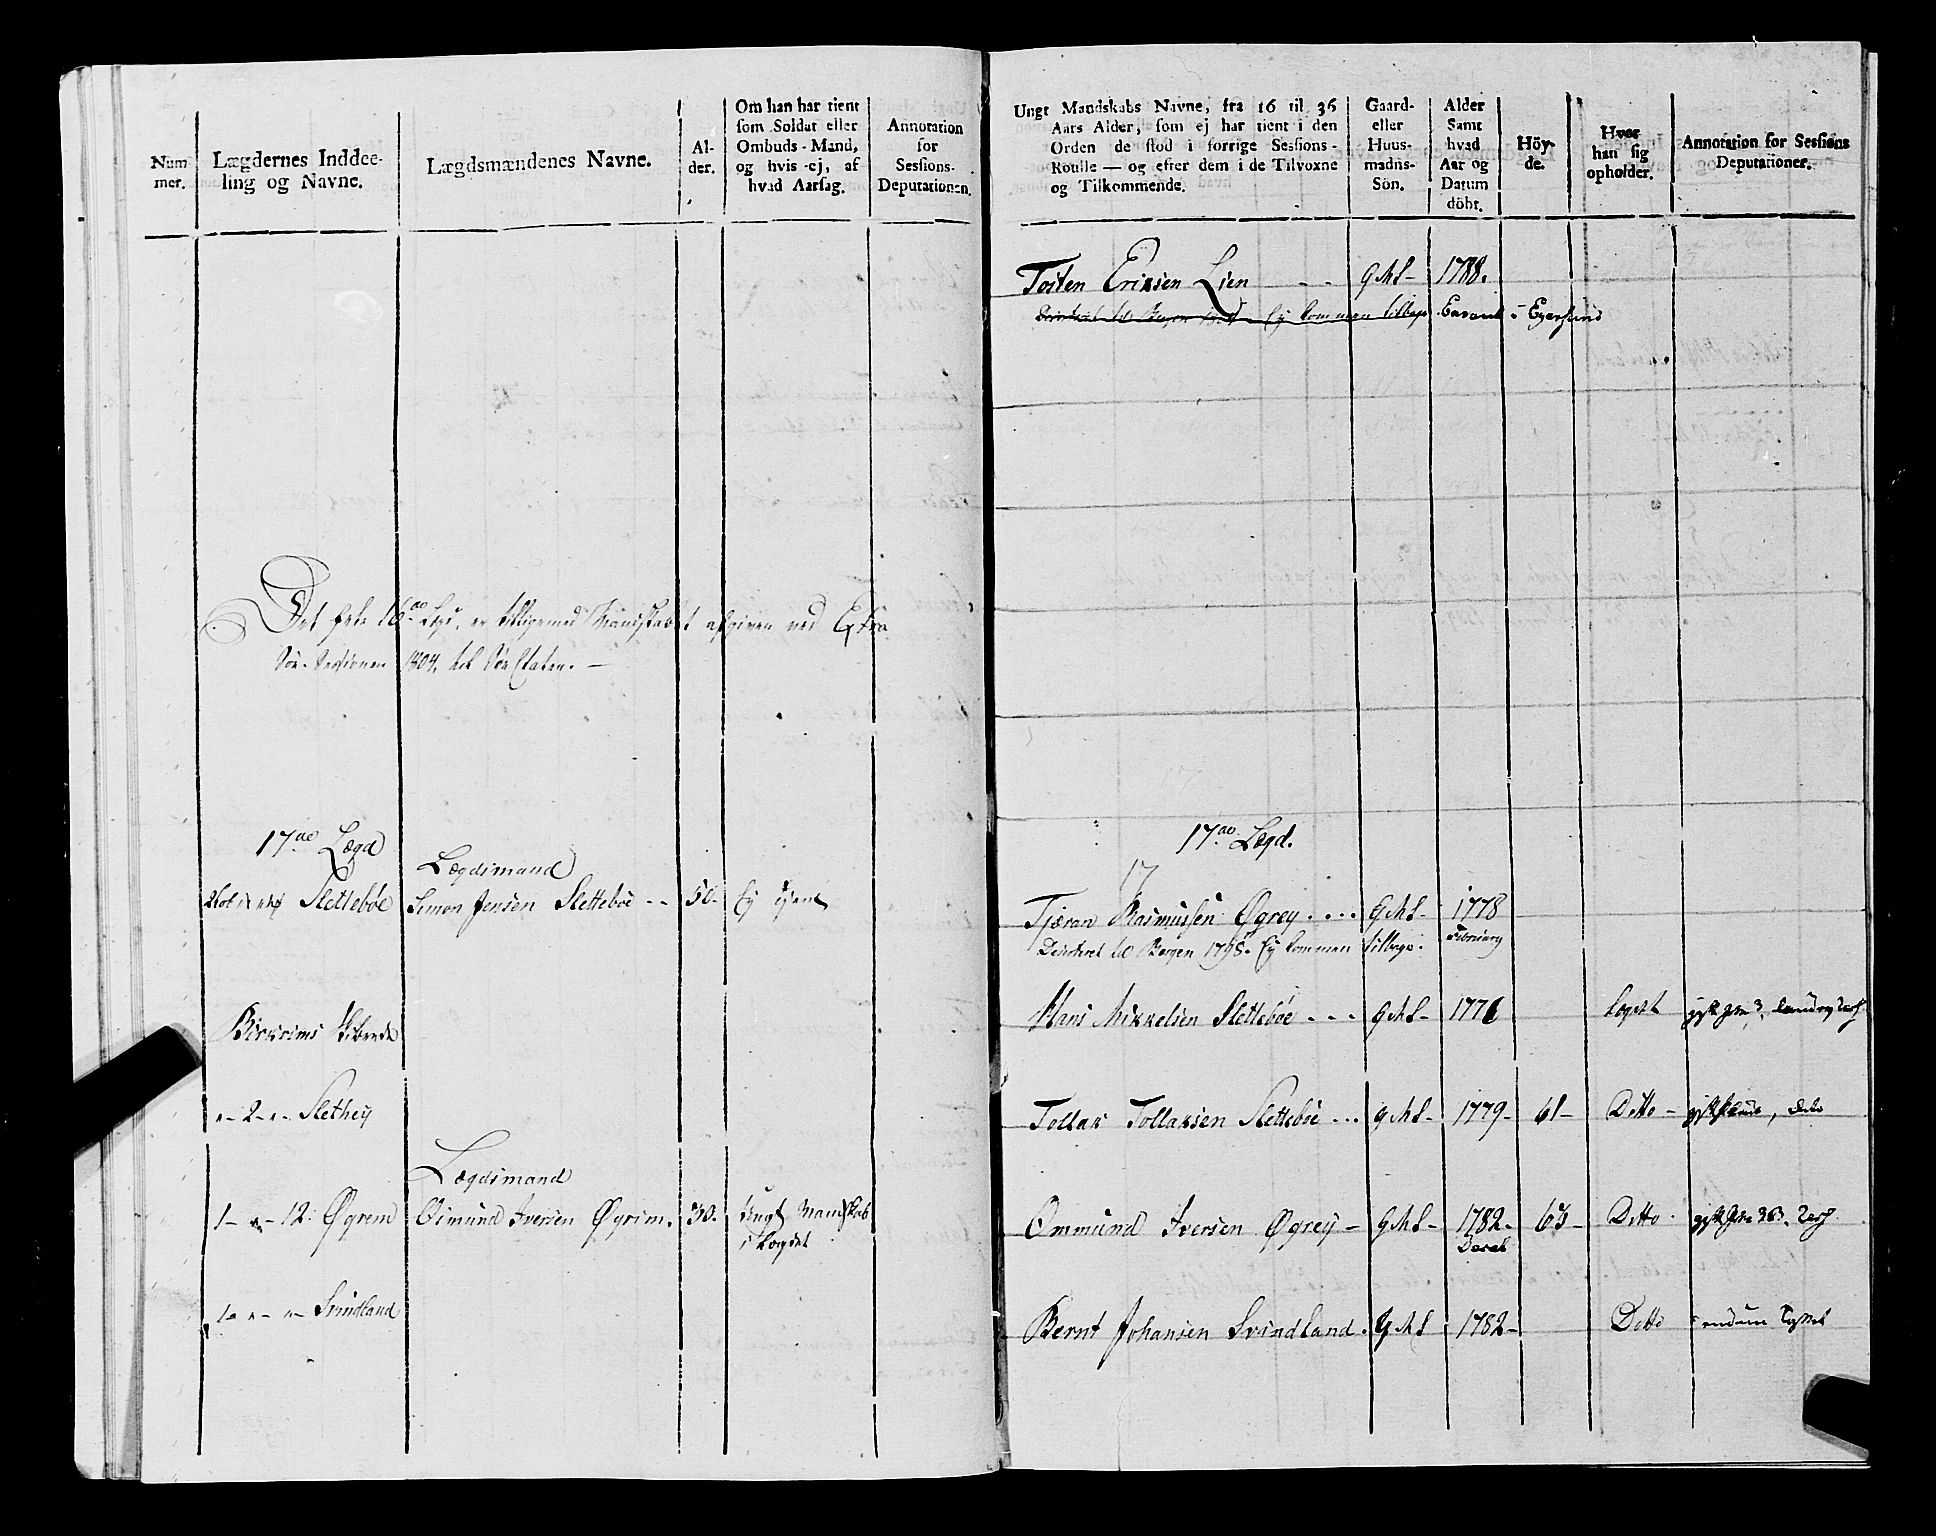 Num
mer.
Lægdernes Inddee-
ling og Navne.
Lægdsmændenes Navne.
Al-
der.
Om han har tient
som Soldat eller
Ombuds-Mand,
og hvis ej, af
hvad Aarsag.
Annotation
for
Sessions-
Deputationen.
Det hele 16de Lægd, er tilligemed Mandskabet afgiven ved Extra
Söe-Sessionen 1804, til Söe Etaten. —
17de Lægd
Lægdsmand
Slettebøe
Simon Jensen Slettebøe -- 50. Ej tient
Birkrims Tiberede
"- 2 -"- Slethey
Lægdsmand
1- "- 12. Øgreid Osmund Iversen Øgreim. 30. Ungt Mandskab
i Lægdet
1- "- "- Svindland
Ungt Mandskabs Navne, fra 16 til 36
Aars Alder, som ej har tient i den
Orden de stod i forrige Sessions-
Roulle — og efter dem i de Tilvoxne
og Tilkommende.
Gaard-
eller
Huus-
mands-
Sön.
Alder
Samt
hvad
Aar og
Datum
döbt.
Höy-
de.
Hvor
han sig
opholder.
Annotation for Sessions
Deputationer.
Tosten Erixsen Lien - - G M S - 1788.
Deserteret til Bergen Ej kommen tilbage i Egersund
17de Lægd.
17
Tjæran Rasmussen Øgrey .... G M S - 1778
Deserteret til Bergen 1798. Ej kommen tilbage. February
Hans Mikkelsen Slettebøe - - - G M S - 1776 Lægdet
Tollak Tollaksen Slettebøe ... G M S - 1779 - 61 - Ditto -
Ommund Iversen Øgrey - G M S - 1782 - 63 - Ditto
Bernt Johansen Svindland. G M S 1782 - Ditto